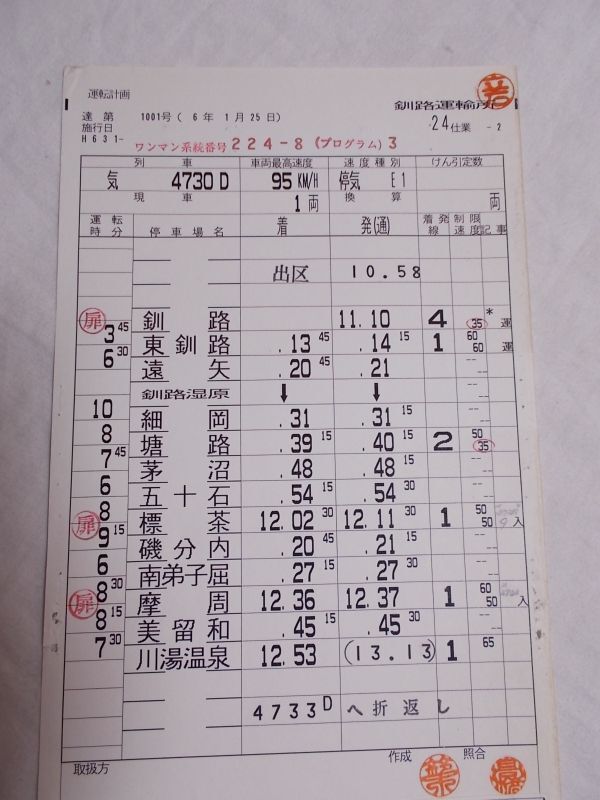 運転計画
釧路運輸所
達第 1001号 ( 6年 1月 25日)
24仕業 -2
施行日
H631-
ワンマン系統番号 224-8 (プログラム) 3
列車 車両最高速度 速度種別 けん引定数
気 4730D 95KM/H 停気 E1
現車 1両 換算 両
運転時分 停車場名 着 発(通) 着発線 制限速度 記事
出区 10.58
扉 釧路 11.10 4 35 * 運
3 45
東釧路 .13 45 .14 15 1 60 60 運
6 30
遠矢 .20 45 .21
釧路湿原 ↓ ↓
10
細岡 .31 .31 15
8
塘路 .39 15 .40 15 2 50 35
7 45
茅沼 .48 .48 15
6
五十石 .54 15 .54 30
8
扉 標茶 12.02 30 12.11 30 1 50 50 入
9 15
磯分内 .20 45 .21 15
6
南弟子屈 .27 15 .27 30
8 30
扉 摩周 12.36 12.37 1 60 50 入
8 15
美留和 .45 15 .45 30
7 30
川湯温泉 12.53 (13.13) 1 65
4733D へ折返し
取扱方 作成 照合